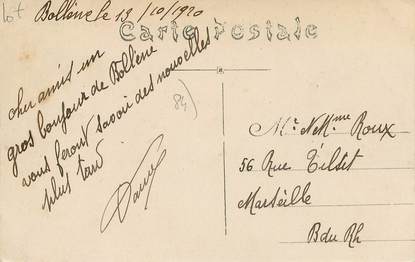 lot
Bollène le 19/10/1920
Carte Postale
cher amis un
gros bonjour de Bollène
vous feront savoir des nouvelles
plus tard
84)
Mr. & Mme Roux
56 Rue Tilsit
Marseille
B du Rh